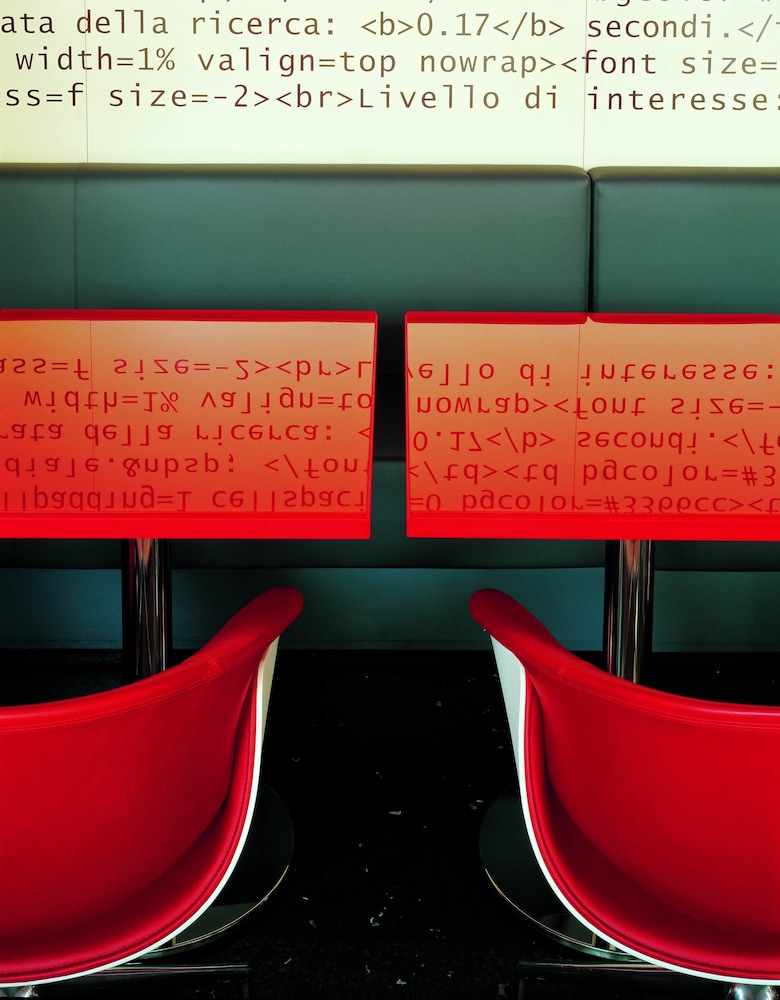 ata della ricerca: <b>0.17</b> secondi.</
width=1% valign=top nowrap><font size=
ss=f size=-2><br>Livello di interesse:
ass=f size=-2><br>L vello di interesse:
width=1% valign=to nowrap><font size=-
rata della ricerca: < 0.17</b> secondi.</fo
diale.&nbsp; </font </td><td bgcolor=#3
llpadding=1 cellspaci =0 bgcolor=#3366cc><t